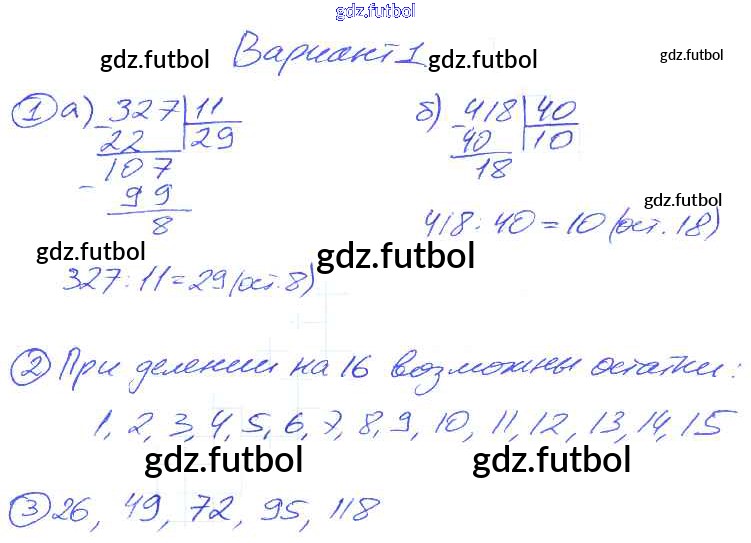 gdz.futbol
Вариант 1
gdz.futbol gdz.futbol gdz.futbol
① а) 327 | 11
- 22 | 29
107
- 99
8
327 : 11 = 29 (ост. 8)
б) 418 | 40
- 40 | 10
18
gdz.futbol
418 : 40 = 10 (ост. 18)
gdz.futbol gdz.futbol
② При делении на 16 возможны остатки:
1, 2, 3, 4, 5, 6, 7, 8, 9, 10, 11, 12, 13, 14, 15
gdz.futbol gdz.futbol
③ 26, 49, 72, 95, 118